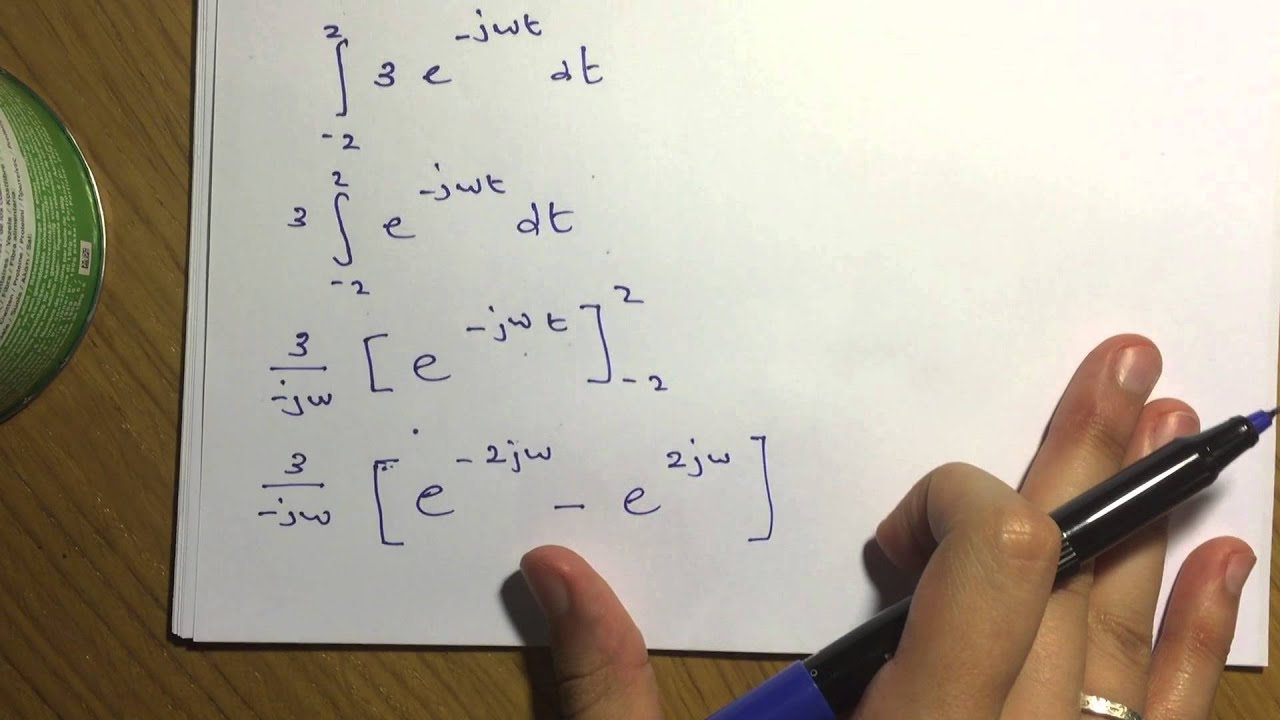 ∫₋₂² 3 e^(-jωt) dt
3 ∫₋₂² e^(-jωt) dt
3/(-jω) [e^(-jωt)]₋₂²
3/(-jω) [e^(-2jω) - e^(2jω)]